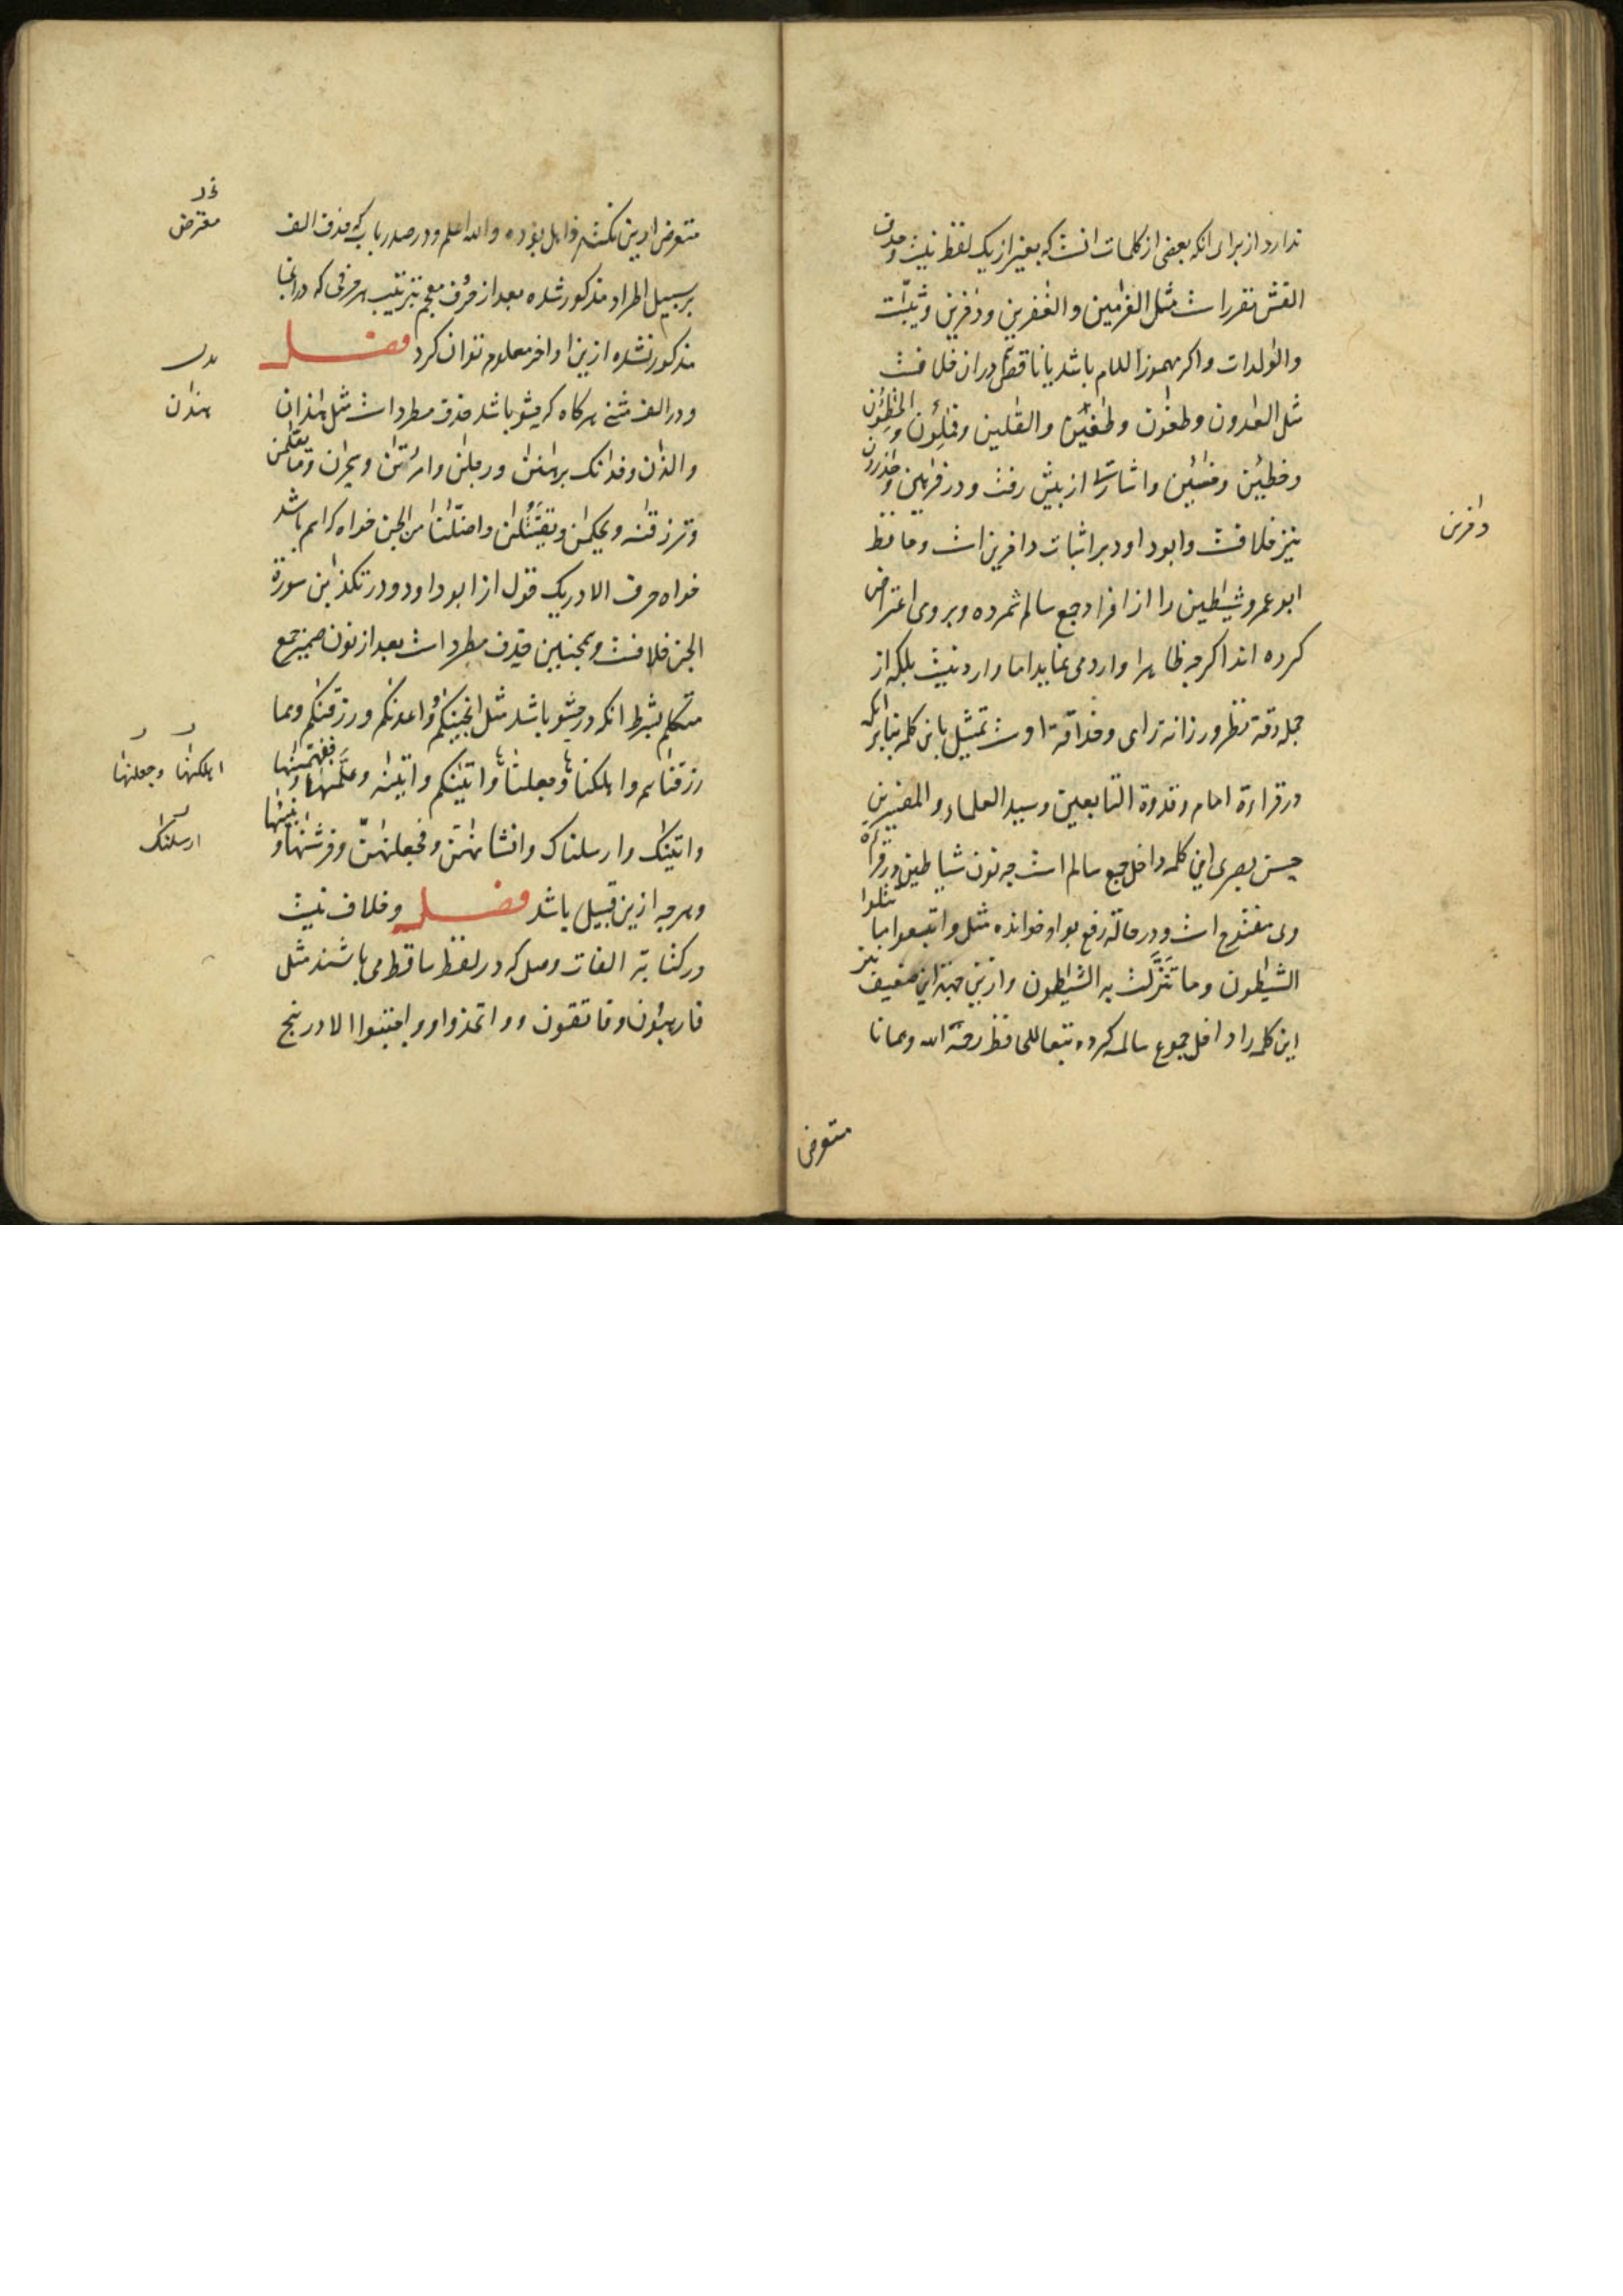 ندارد از برای انکه بعضی از کلمات انست که بغیر از یک لفظ نیست و حذف
الفش مقرر است مثل الغرمین و الغفرین و ذخرین و ثیبت
والولدات و اکر مهموز اللام باشد یا ناقص در ان خلافست
مثل العدون و طغون و طغین و القلین و فملؤن و الخطئون
و خطئین و خسئین و اشارت از پیش رفت و در
نیز خلافست و ابو داود بر اثبات داخرین است و حافظ
داخرین
ابو عمرو شیطین را از افراد جمع سالم شمرده و بر وی اعتراض
کرده اند اکر چه ظاهرا وارد می نماید اما وارد نیست بلکه از
جمله دقة نظر و رزانة رای و حذاقة اوست تمثیل باین کلمه بنا بر انکه
در قراءة امام و قدوة التابعین و سید العلماء و المفسرین
حسن بصری این کلمه داخل جمع سالم است چه نون شیاطین در قراءة
وی مفتوح است و در حالة رفع بواو خوانده مثل واتبعوا ما تتلوا
الشیطون و ما تنزلت به الشیطون و ازین جهة این ضعیف نیز
این کلمه را داخل جموع سالمه کرده تبعا للحافظ رحمة الله و همانا
متعرض
متعرض ازین نکته ذاهل بوده والله اعلم و در صدر باب که حذف الف
معترض
بر سبیل اطراد مذکور شده بعد از حرف معجم بترتیب هر حرفی که در انجا
مذکور نشده ازین اواخر معلوم توان کرد فصل
و در الف مثنی هر کاه که حشو باشد حذف مطرد است مثل هذان
هذان
والذان و فذانک برهنن و رجلن و امرأتن و یحران و ما یعلمن
و ترزقنه و یحکمن و یقتتلن و اضلنا من الجن خواه که اسم باشد
خواه حرف الا در یک قول از ابو داود و در تکذبن سورة
الرحمن خلافست و همچنین حذف مطرد است بعد از نون ضمیر جمع
متکلم بشرط انکه در حشو باشد مثل انجینکم و وعدنکم و رزقنکم و مما
رزقناهم و اهلکناها و جعلناها و اتینکم و اتینه و علمنه و ففهمنها
اهلکنها وجعلنها
و اتینک و ارسلناک و انشأنهن و فجعلنهن و فرشنها و بنینها
ارسلنک
و هر چه ازین قبیل باشد فصل و خلاف نیست
در کتابة الفات وصل که در لفظ ساقط می باشند مثل
فارهبون و فاتقون و واتخذوا و واجتنبوا الا در پنج